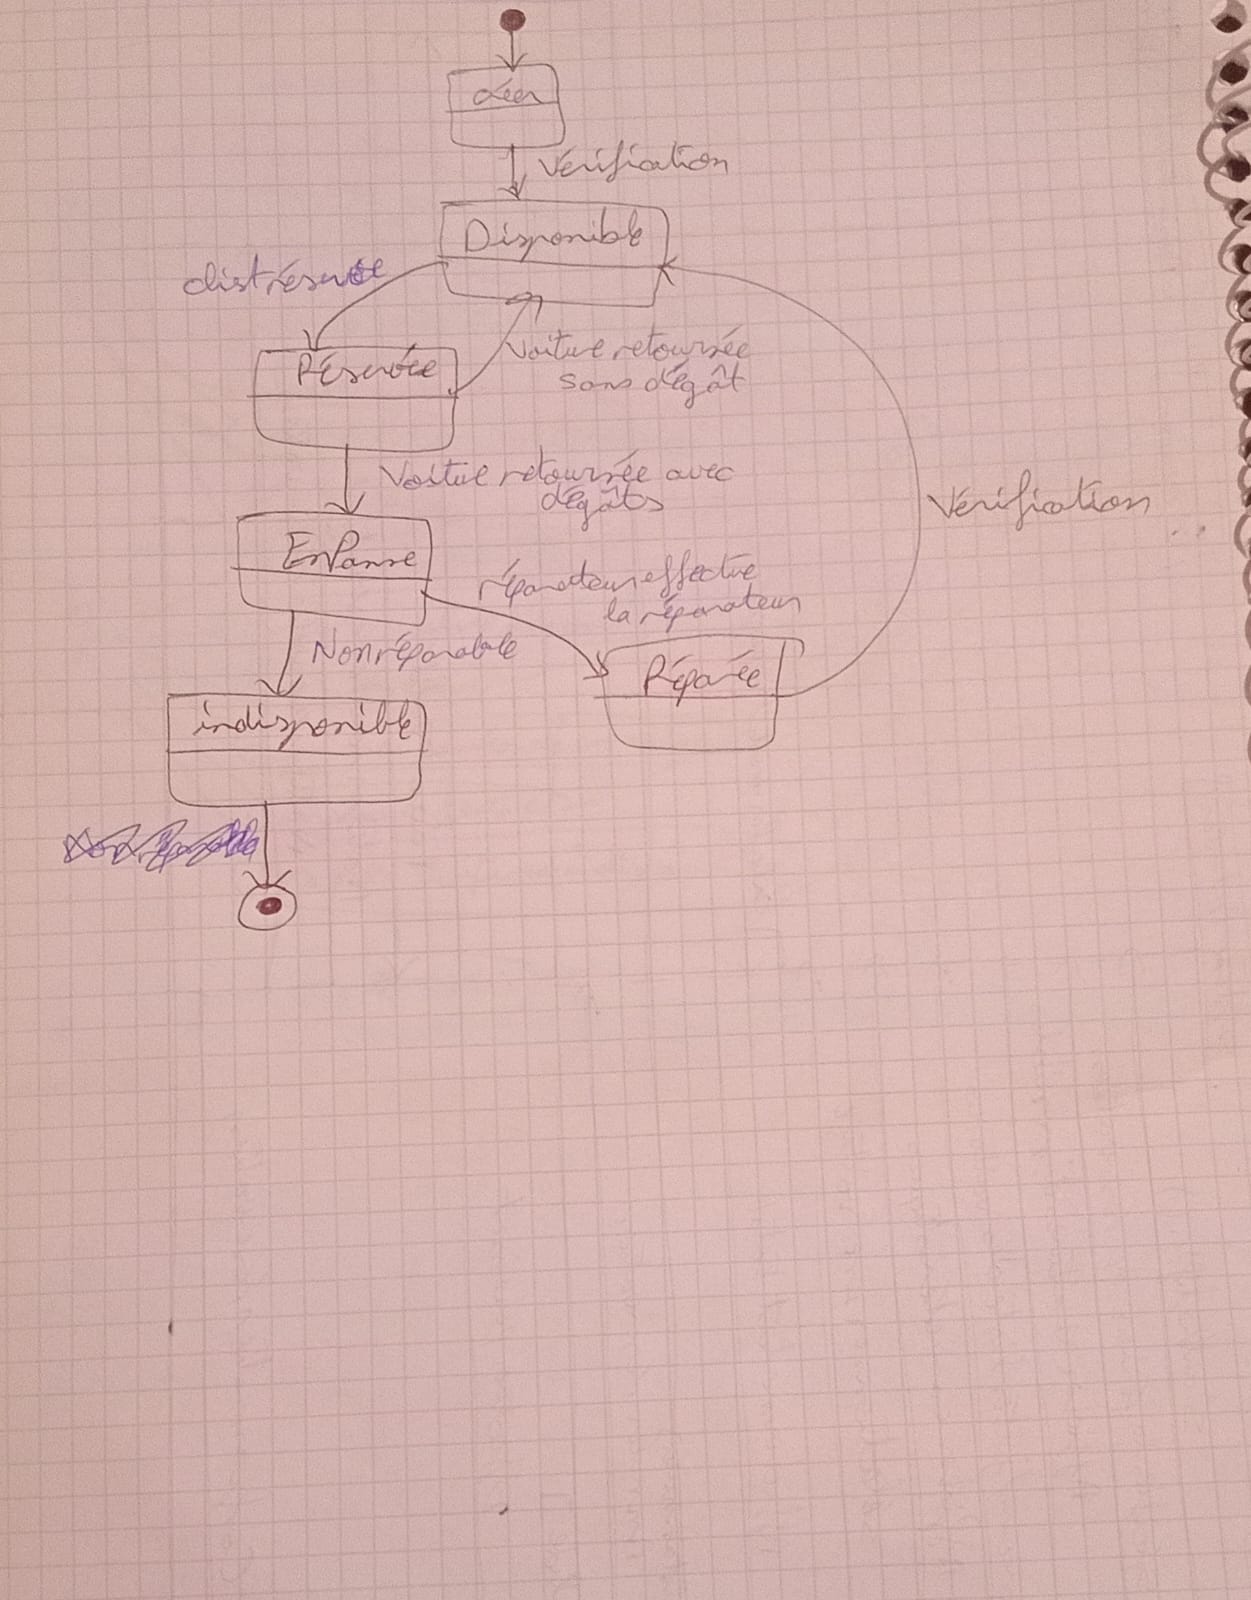 créer
Vérification
Disponible
client réservée
Réservée
Voiture retournée
sans dégât
Voiture retournée avec
dégâts
Vérification
EnPanne
réparateur effectue
la réparateur
Non réparable
Réparée
indisponible